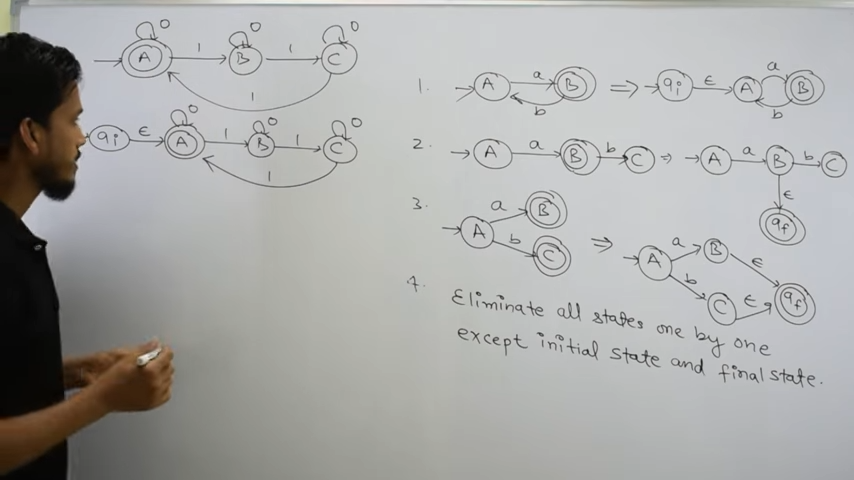 0 0 0
A 1 B 1 C
1
0 0 0
qi ε A 1 B 1 C
1
1. A a B b ⇒ qi ε A a B b
2. A a B b C ⇒ A a B b C
ε
qf
3. A a B b C ⇒ A a B ε b C ε qf
4. Eliminate all states one by one
except initial state and final state.